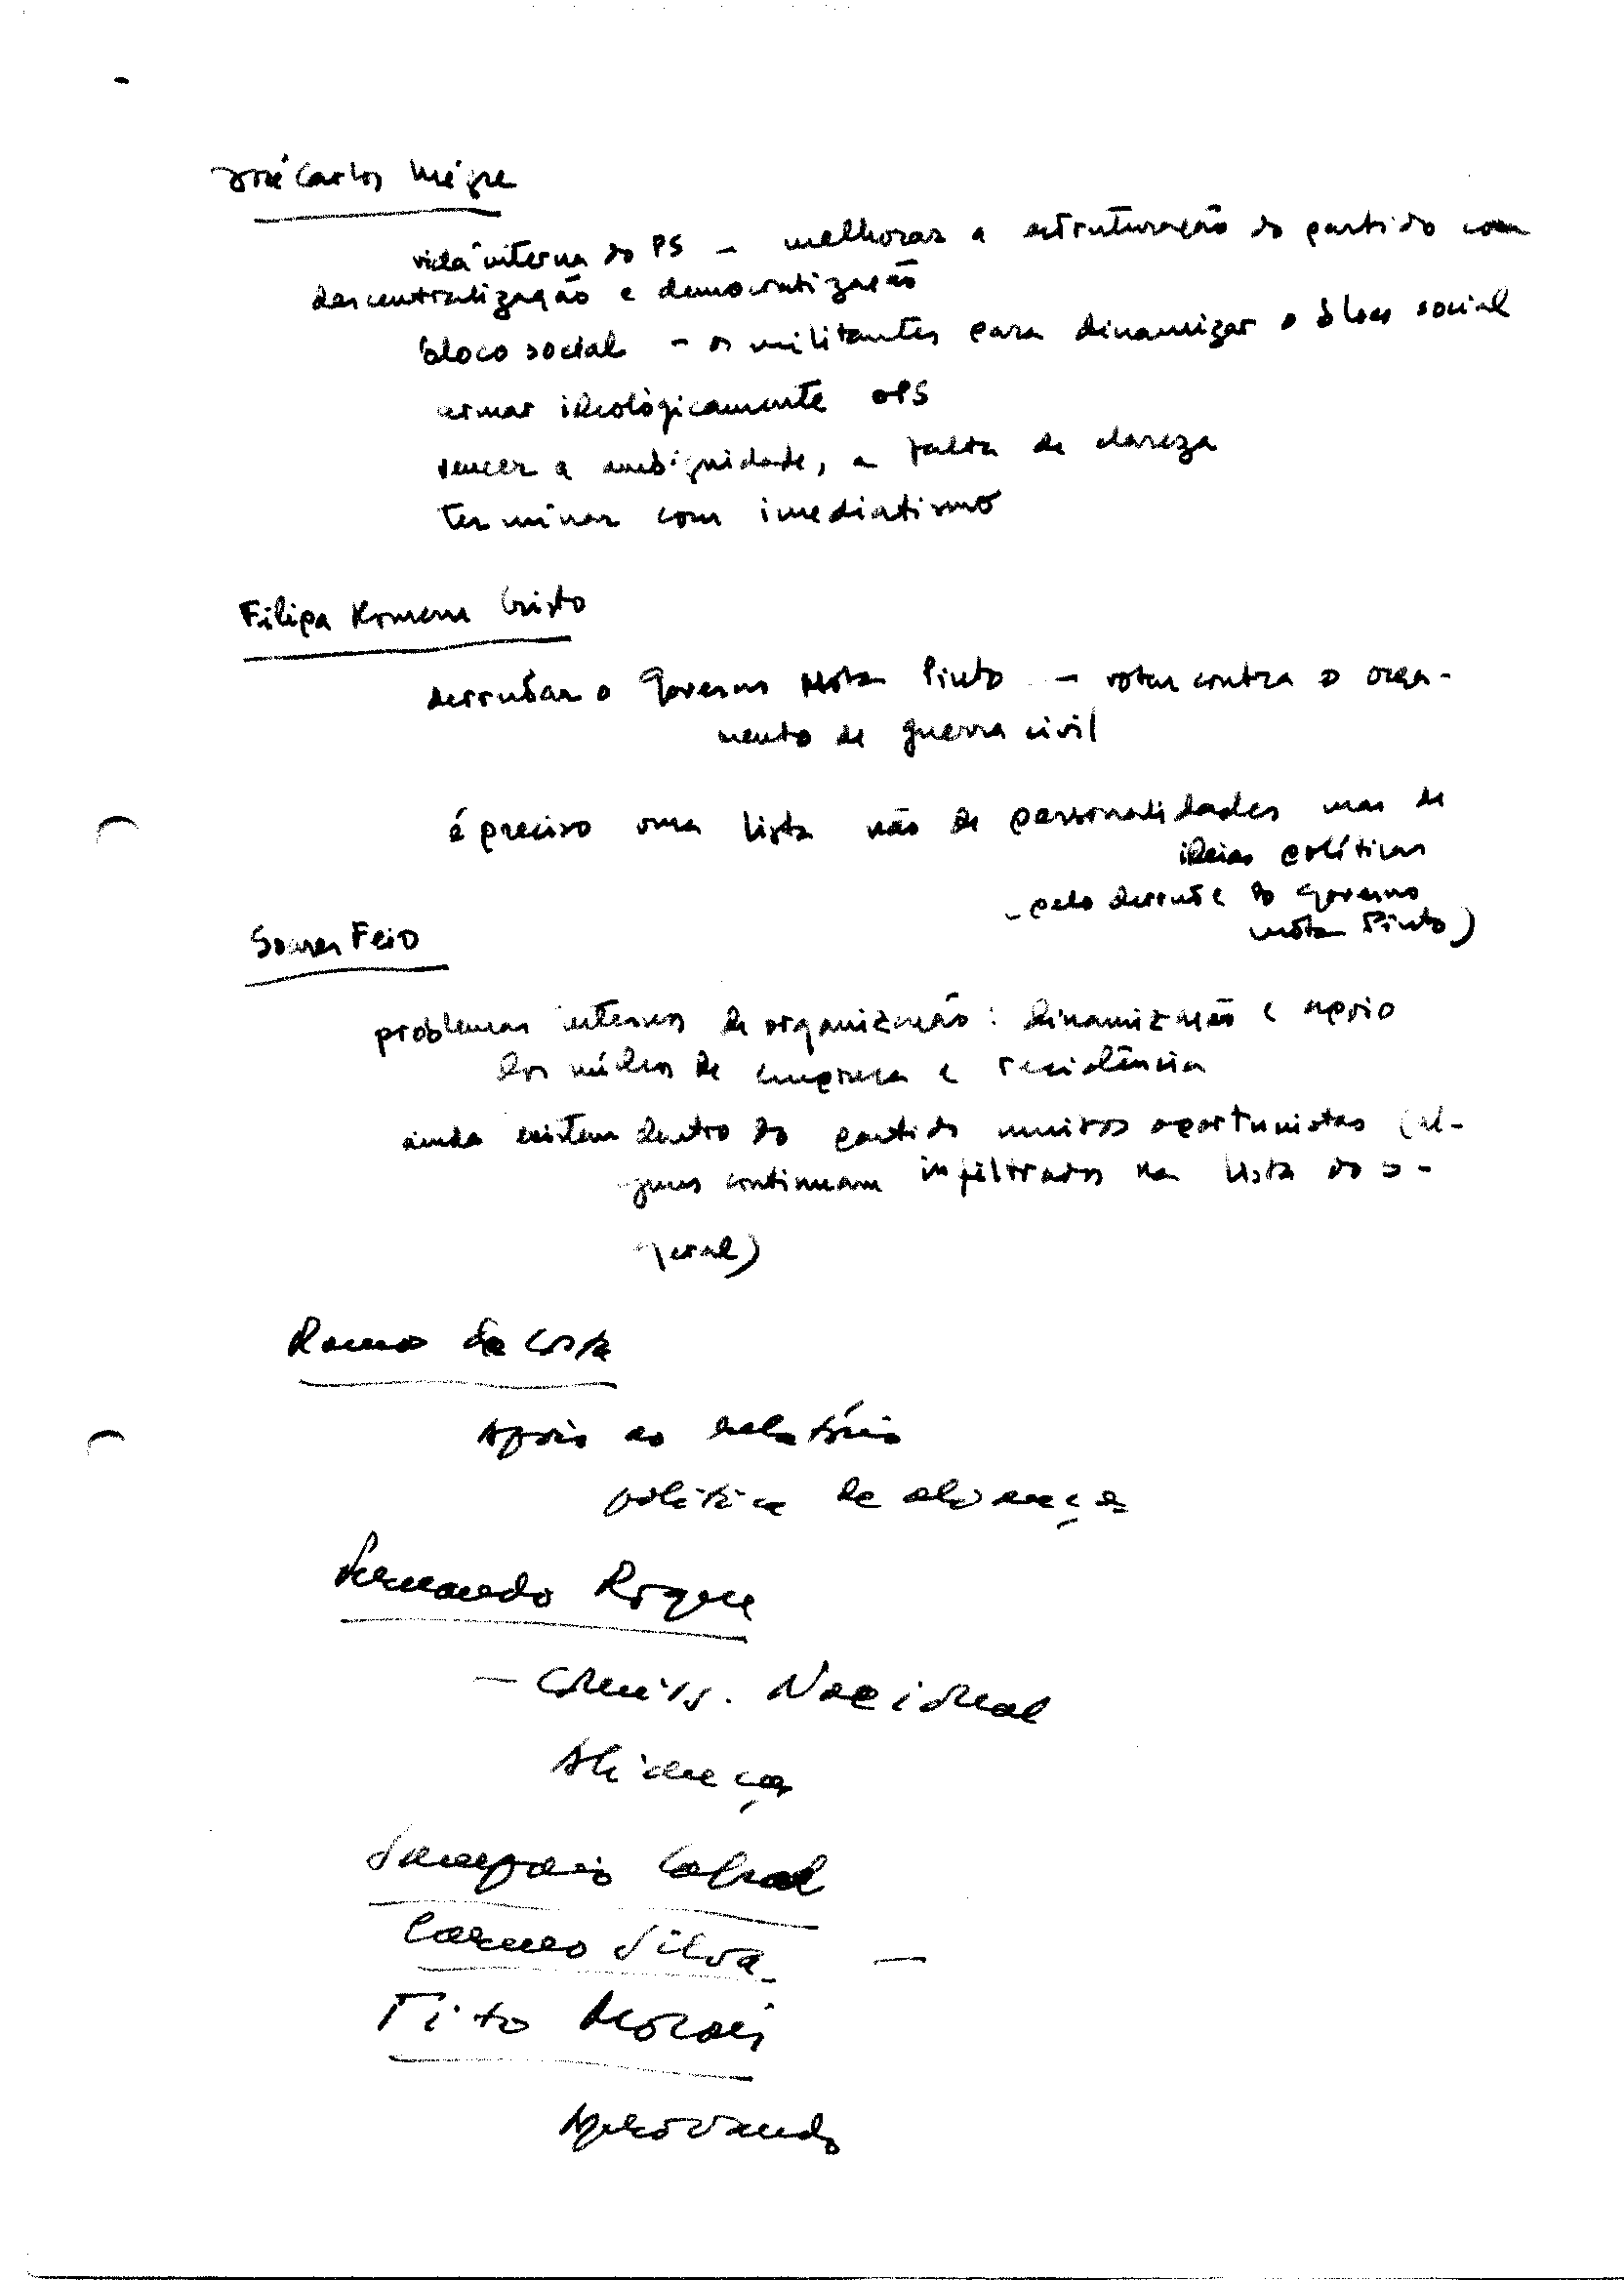 José Carlos Mégre
vida interna do PS - melhorar a estruturação do partido com
descentralização e democratização
bloco social - os militantes para dinamizar o bloco social
armar ideològicamente o PS
vencer a ambiguidade, a falta de clareza
terminar com imediatismo
Filipa Romena Cristo
derrubar o Governo Mota Pinto - votar contra o orça-
mento de guerra civil
é preciso uma lista não de personalidades mas de
ideias políticas
- pelo derrube do Governo
Mota Pinto)
Soares Feio
problemas internos de organização: dinamização e apoio
dos núcleos de empresa e residência
ainda existem dentro do partido muitos oportunistas (al-
guns continuam infiltrados na lista do s-
geral)
Ramos da Costa
Apoio ao relatório
política de aliança
Fernando Roque
- Comiss. Nacional
Aliança
Sampaio Cabral
Carmo Silva -
Tito Morais
Aprovando